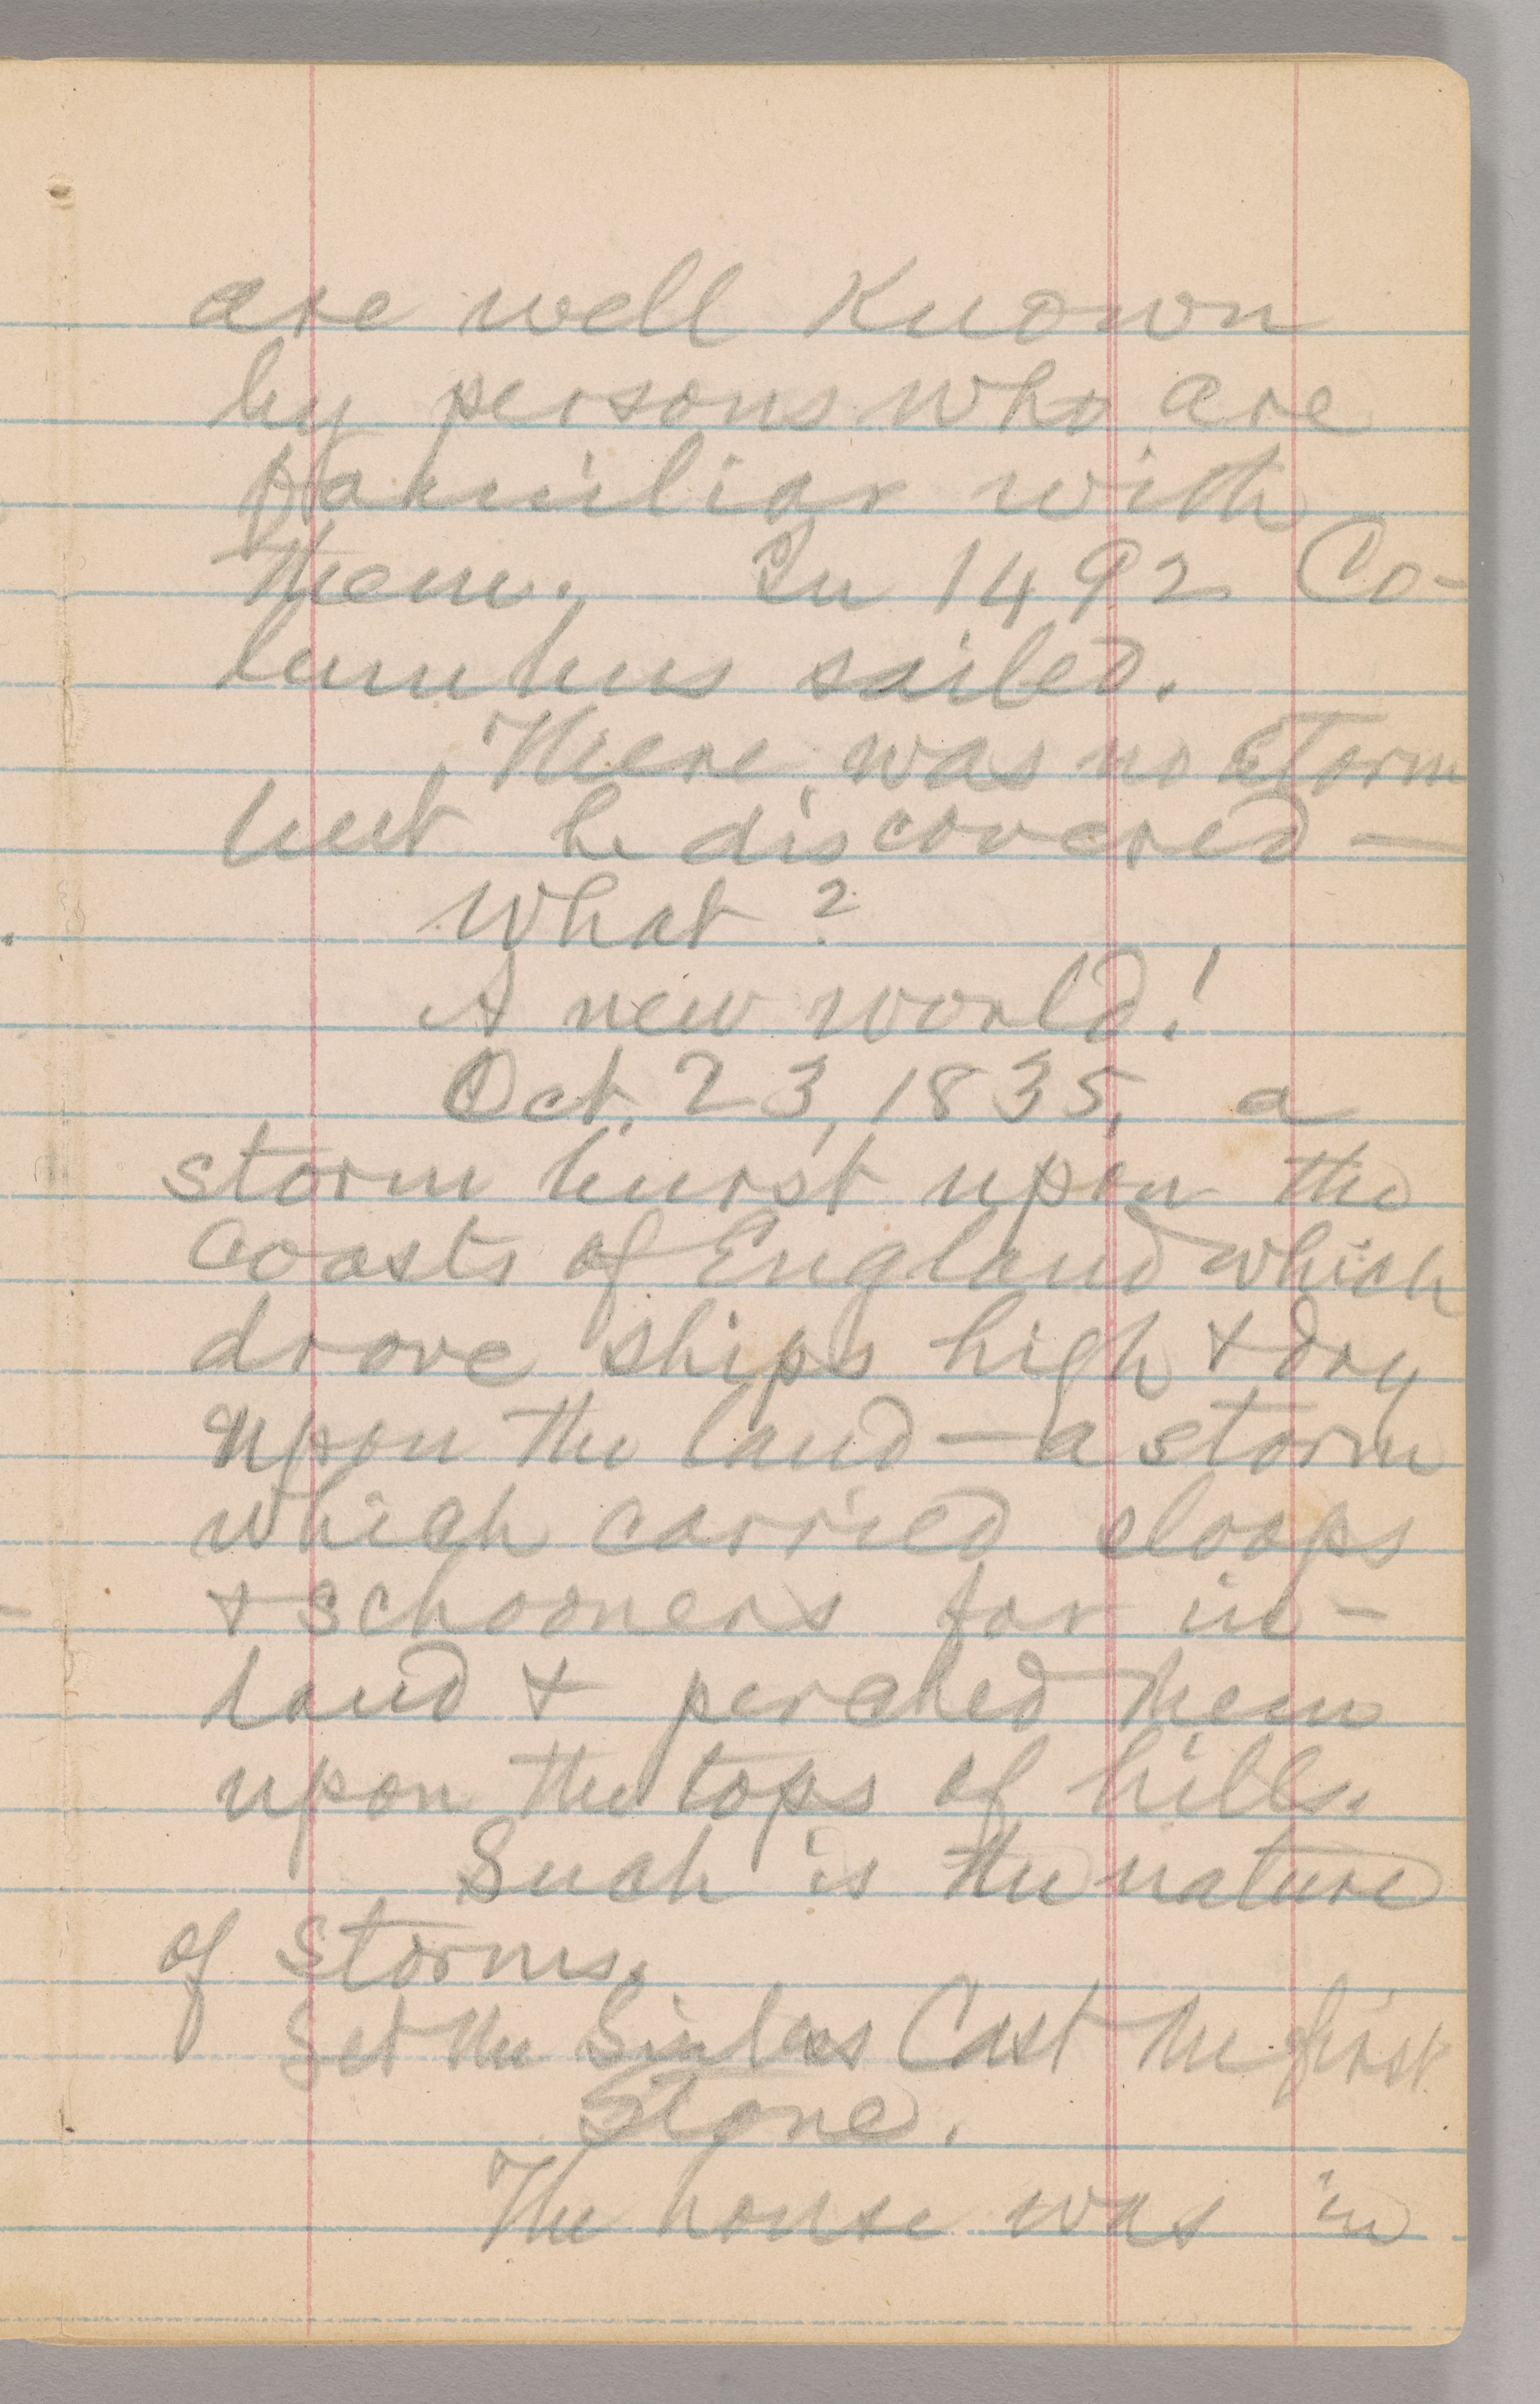 are well known
by persons who are
familiar with
them. In 1492 Co-
lumbus sailed.
There was no storm
but he discovered —
What?
A new world!
Oct. 23, 1835, a
storm burst upon the
coasts of England which
drove ships high & dry
upon the land — a storm
which carried sloops
& schooners far in-
land & perched them
upon the tops of hills.
Such is the nature
of storms.
Let the Sinless Cast the first
Stone.
The house was in